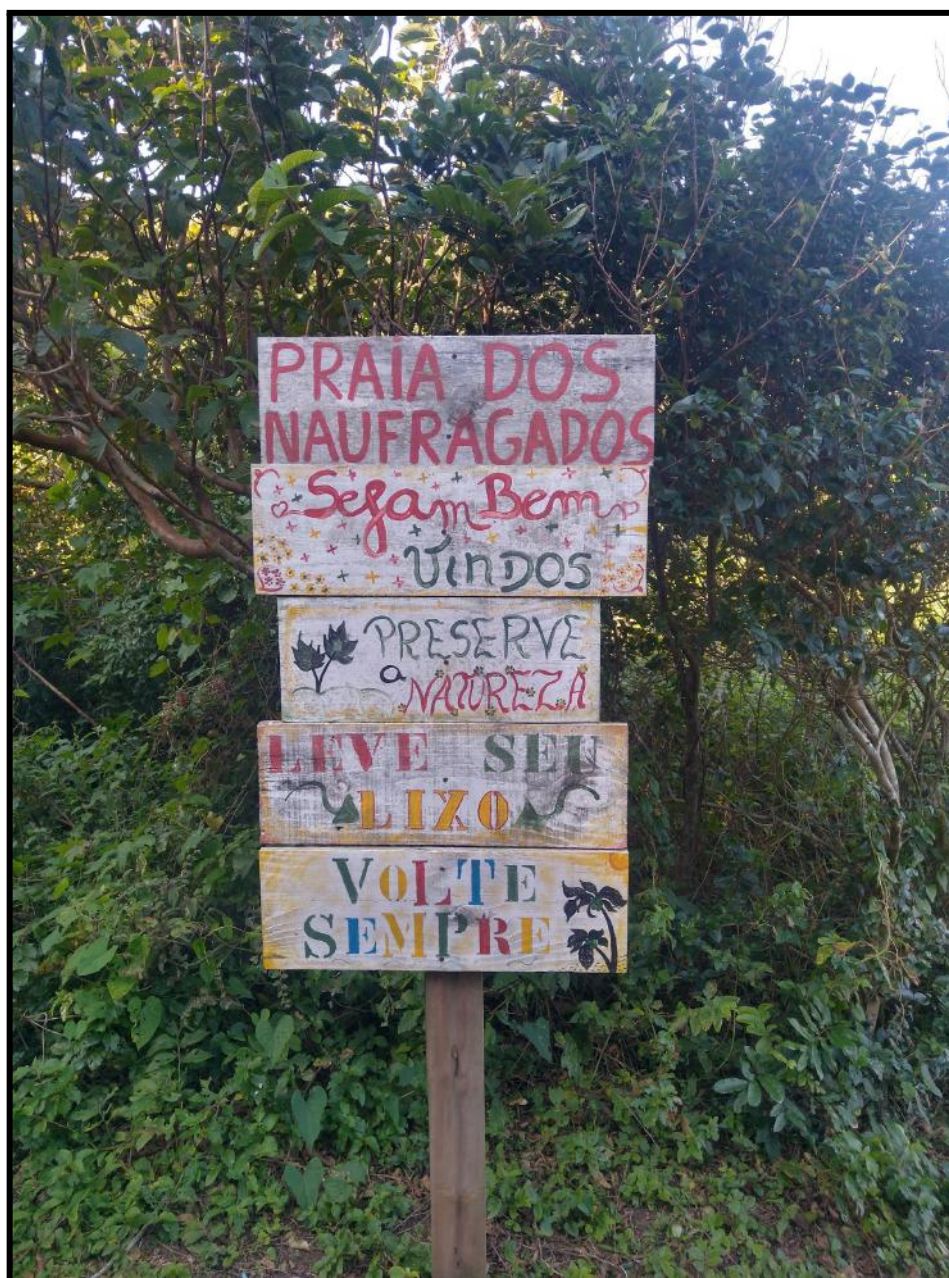 PRAIA DOS
NAUFRAGADOS
Sejam Bem
VINDOS
PRESERVE
a NATUREZA
LEVE SEU
LIXO
VOLTE
SEMPRE